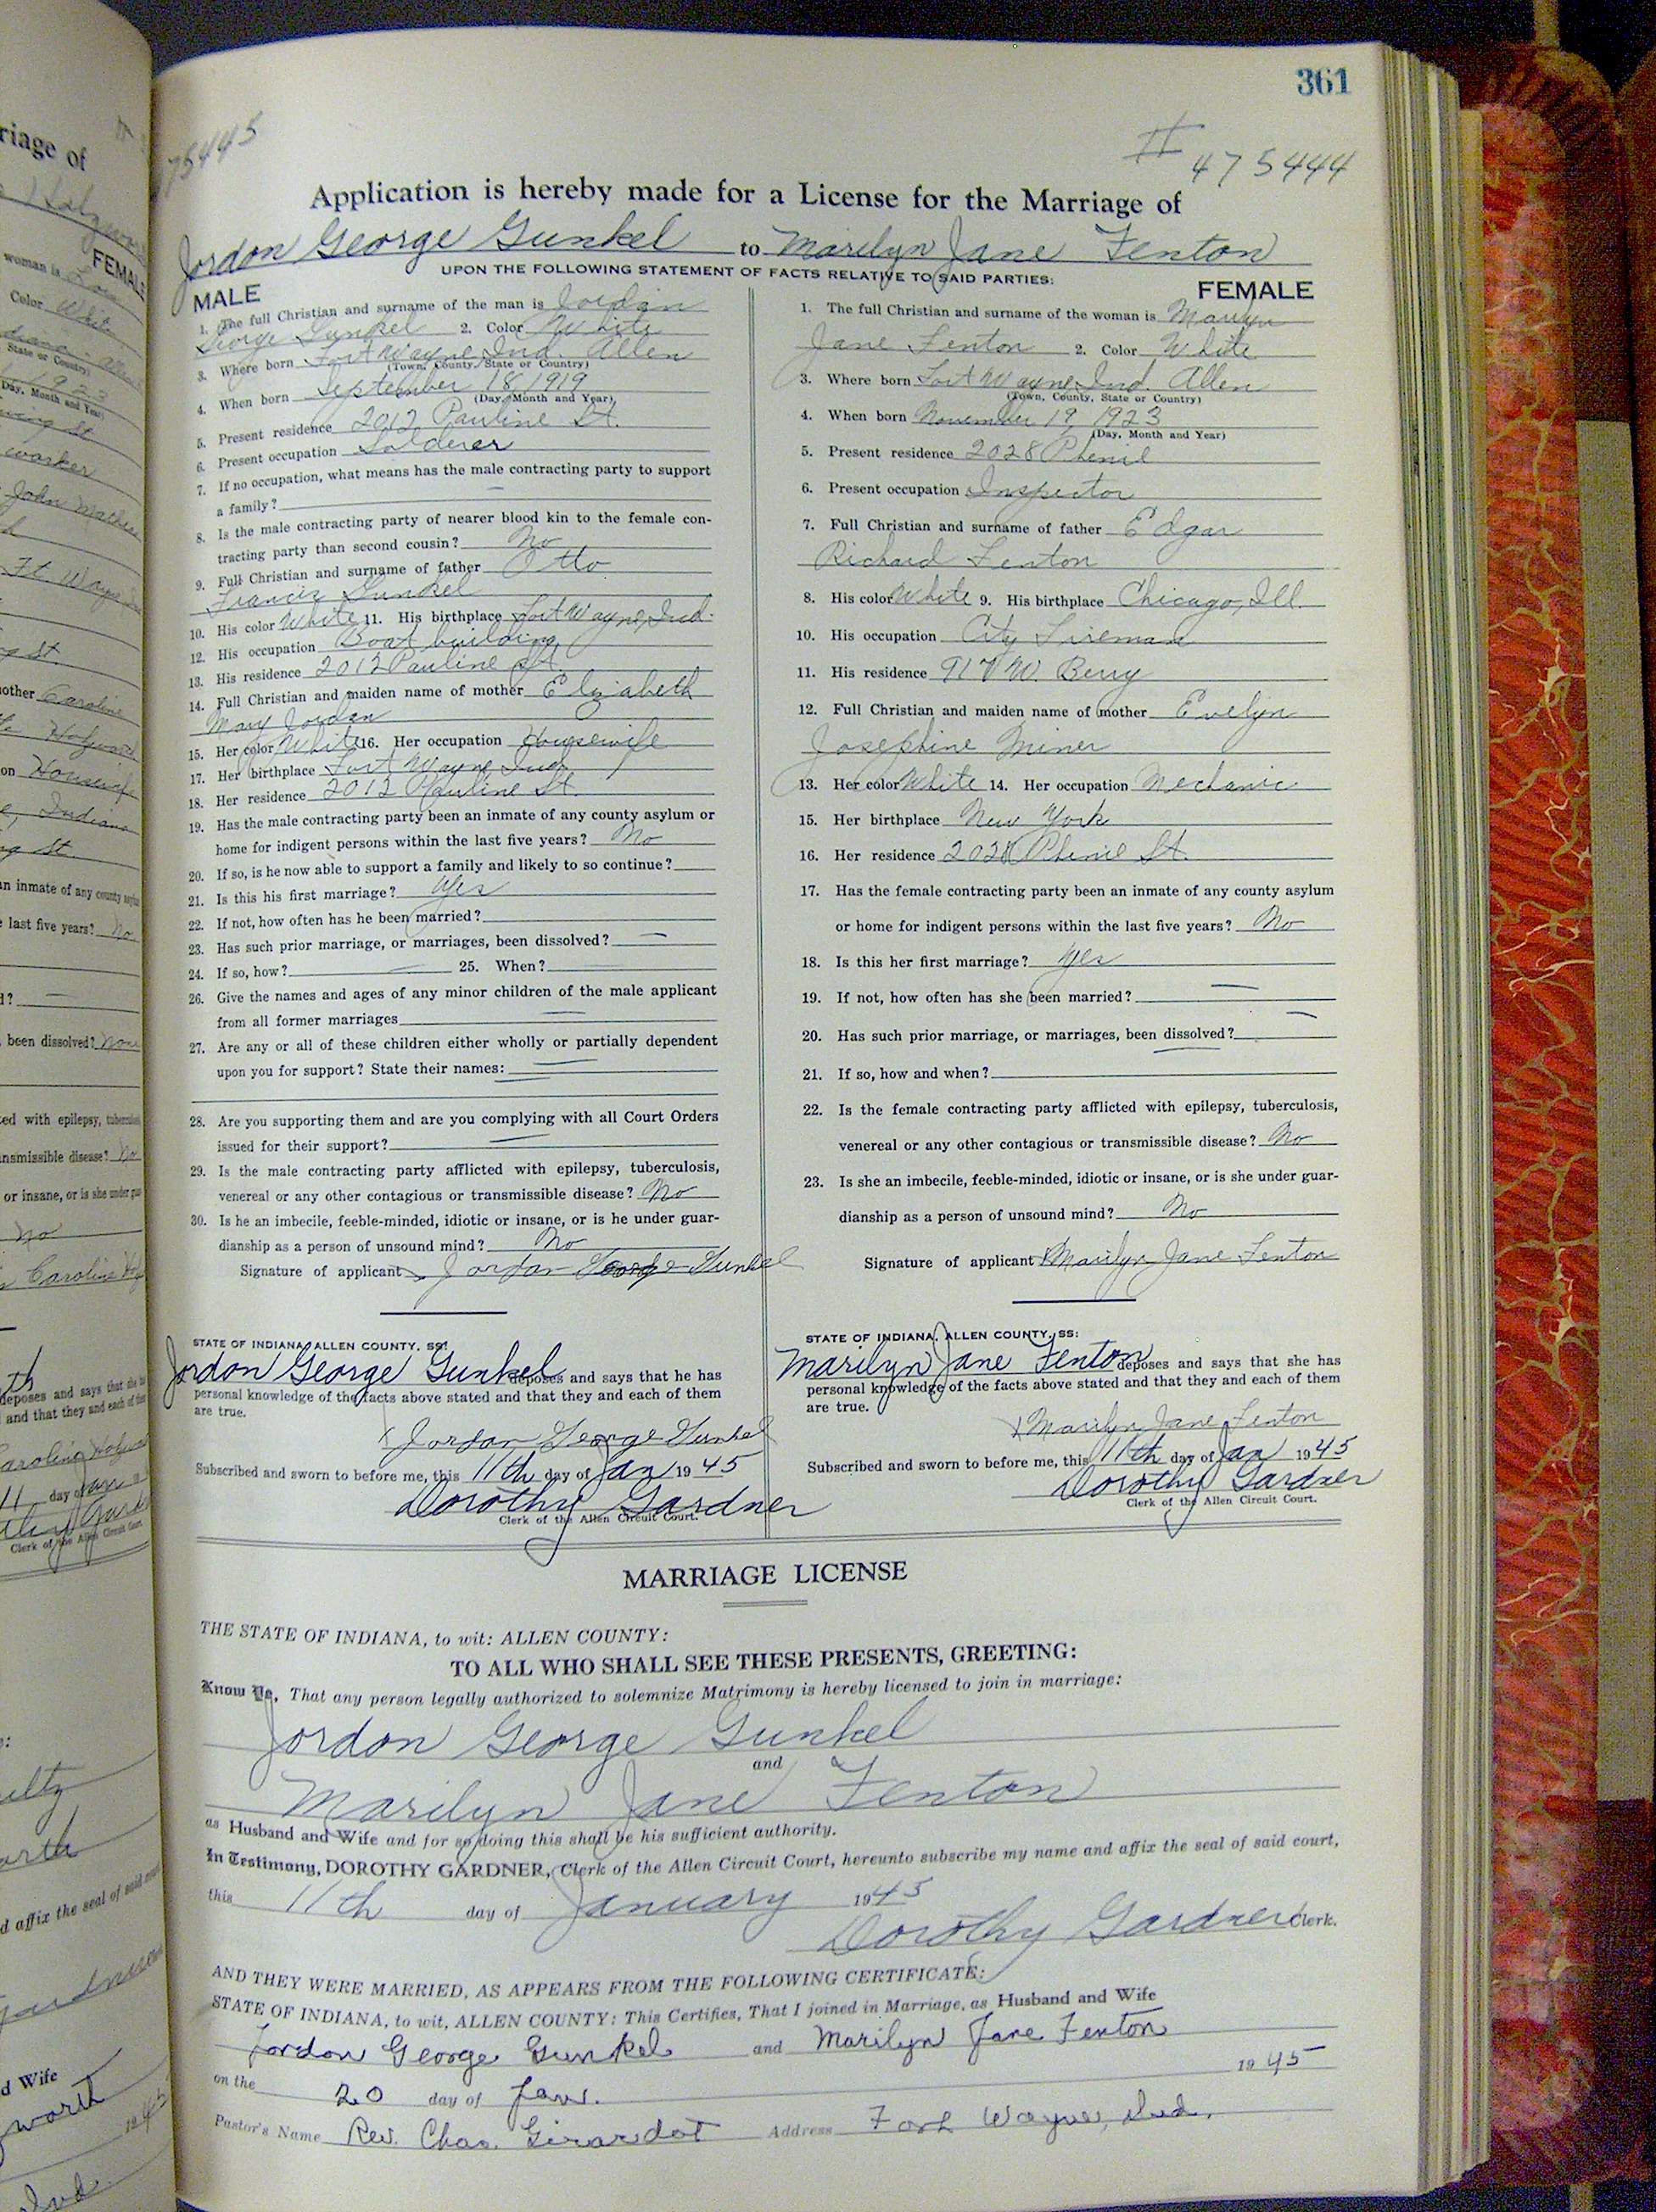 361
75445
# 475444
Application is hereby made for a License for the Marriage of
Jordon George Gunkel to Marilyn Jane Fenton
UPON THE FOLLOWING STATEMENT OF FACTS RELATIVE TO SAID PARTIES:
MALE
1. The full Christian and surname of the man is Jordan
George Gunkel 2. Color White
3. Where born Fort Wayne, Ind. Allen
(Town, County, State or Country)
4. When born September 18, 1919
(Day, Month and Year)
5. Present residence 2012 Pauline St.
6. Present occupation Solderer
7. If no occupation, what means has the male contracting party to support
a family? —
8. Is the male contracting party of nearer blood kin to the female con-
tracting party than second cousin? No
9. Full Christian and surname of father Otto
Francis Gunkel
10. His color White 11. His birthplace Fort Wayne, Ind.
12. His occupation Boat building
13. His residence 2012 Pauline St.
14. Full Christian and maiden name of mother Elizabeth
Mary Jordan
15. Her color White 16. Her occupation Housewife
17. Her birthplace Fort Wayne Ind.
18. Her residence 2012 Pauline St.
19. Has the male contracting party been an inmate of any county asylum or
home for indigent persons within the last five years? No
20. If so, is he now able to support a family and likely to so continue?
21. Is this his first marriage? Yes
22. If not, how often has he been married?
23. Has such prior marriage, or marriages, been dissolved? —
24. If so, how? — 25. When?
26. Give the names and ages of any minor children of the male applicant
from all former marriages —
27. Are any or all of these children either wholly or partially dependent
upon you for support? State their names: —
28. Are you supporting them and are you complying with all Court Orders
issued for their support? —
29. Is the male contracting party afflicted with epilepsy, tuberculosis,
venereal or any other contagious or transmissible disease? No
30. Is he an imbecile, feeble-minded, idiotic or insane, or is he under guar-
dianship as a person of unsound mind? No
Signature of applicant Jordan George Gunkel
STATE OF INDIANA, ALLEN COUNTY, SS:
Jordon George Gunkel deposes and says that he has
personal knowledge of the facts above stated and that they and each of them
are true.
X Jordan George Gunkel
Subscribed and sworn to before me, this 11th day of Jan 1945
Dorothy Gardner
Clerk of the Allen Circuit Court.
FEMALE
1. The full Christian and surname of the woman is Marilyn
Jane Fenton 2. Color White
3. Where born Fort Wayne, Ind. Allen
(Town, County, State or Country)
4. When born November 19, 1923
(Day, Month and Year)
5. Present residence 2028
6. Present occupation Inspector
7. Full Christian and surname of father Edgar
Richard Fenton
8. His color White 9. His birthplace Chicago, Ill.
10. His occupation City Fireman
11. His residence W. Berry
12. Full Christian and maiden name of mother Evelyn
Josephine Miner
13. Her color White 14. Her occupation Mechanic
15. Her birthplace New York
16. Her residence 2028 St.
17. Has the female contracting party been an inmate of any county asylum
or home for indigent persons within the last five years? No
18. Is this her first marriage? Yes
19. If not, how often has she been married? —
20. Has such prior marriage, or marriages, been dissolved? —
21. If so, how and when? —
22. Is the female contracting party afflicted with epilepsy, tuberculosis,
venereal or any other contagious or transmissible disease? No
23. Is she an imbecile, feeble-minded, idiotic or insane, or is she under guar-
dianship as a person of unsound mind? No
Signature of applicant X Marilyn Jane Fenton
STATE OF INDIANA, ALLEN COUNTY, SS:
Marilyn Jane Fenton deposes and says that she has
personal knowledge of the facts above stated and that they and each of them
are true.
X Marilyn Jane Fenton
Subscribed and sworn to before me, this 11th day of Jan 1945
Dorothy Gardner
Clerk of the Allen Circuit Court.
MARRIAGE LICENSE
THE STATE OF INDIANA, to wit: ALLEN COUNTY:
TO ALL WHO SHALL SEE THESE PRESENTS, GREETING:
Know Ye, That any person legally authorized to solemnize Matrimony is hereby licensed to join in marriage:
Jordon George Gunkel
and
Marilyn Jane Fenton
as Husband and Wife and for so doing this shall be his sufficient authority.
In Testimony, DOROTHY GARDNER, Clerk of the Allen Circuit Court, hereunto subscribe my name and affix the seal of said court,
this 11th day of January 1945
Dorothy Gardner Clerk.
AND THEY WERE MARRIED, AS APPEARS FROM THE FOLLOWING CERTIFICATE:
STATE OF INDIANA, to wit, ALLEN COUNTY: This Certifies, That I joined in Marriage, as Husband and Wife
Jordon George Gunkel and Marilyn Jane Fenton
on the 20 day of Jan. 1945
Pastor's Name Rev. Chas. Girardot Address Fort Wayne, Ind.